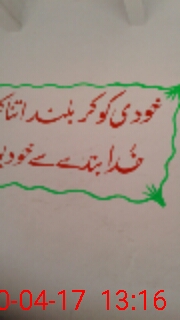 خودی کو کر بلند اتنا
خُدا بندے سے خود
0-04-17 13:16